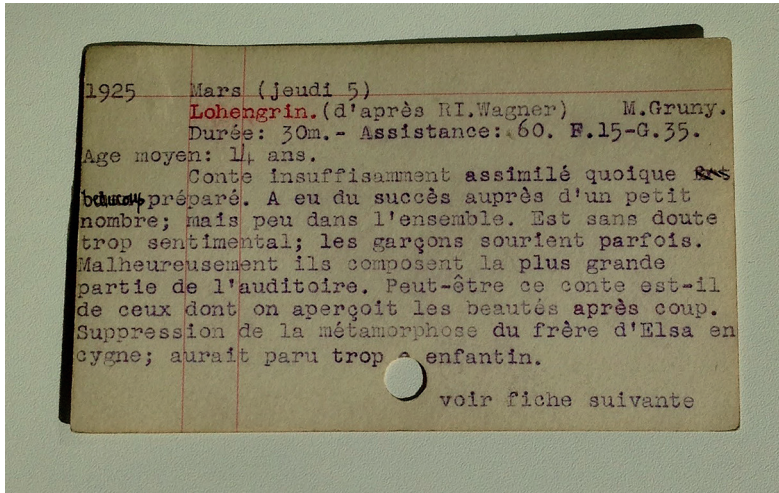 1925 Mars (jeudi 5)
Lohengrin.(d'après RI.Wagner) M.Gruny.
Durée: 30m.- Assistance: 60. F.15-G.35.
Age moyen: 14 ans.
Conte insuffisamment assimilé quoique
beaucoup préparé. A eu du succès auprès d'un petit
nombre; mais peu dans l'ensemble. Est sans doute
trop sentimental; les garçons sourient parfois.
Malheureusement ils composent la plus grande
partie de l'auditoire. Peut-être ce conte est-il
de ceux dont on aperçoit les beautés après coup.
Suppression de la métamorphose du frère d'Elsa en
cygne; aurait paru trop e enfantin.
voir fiche suivante